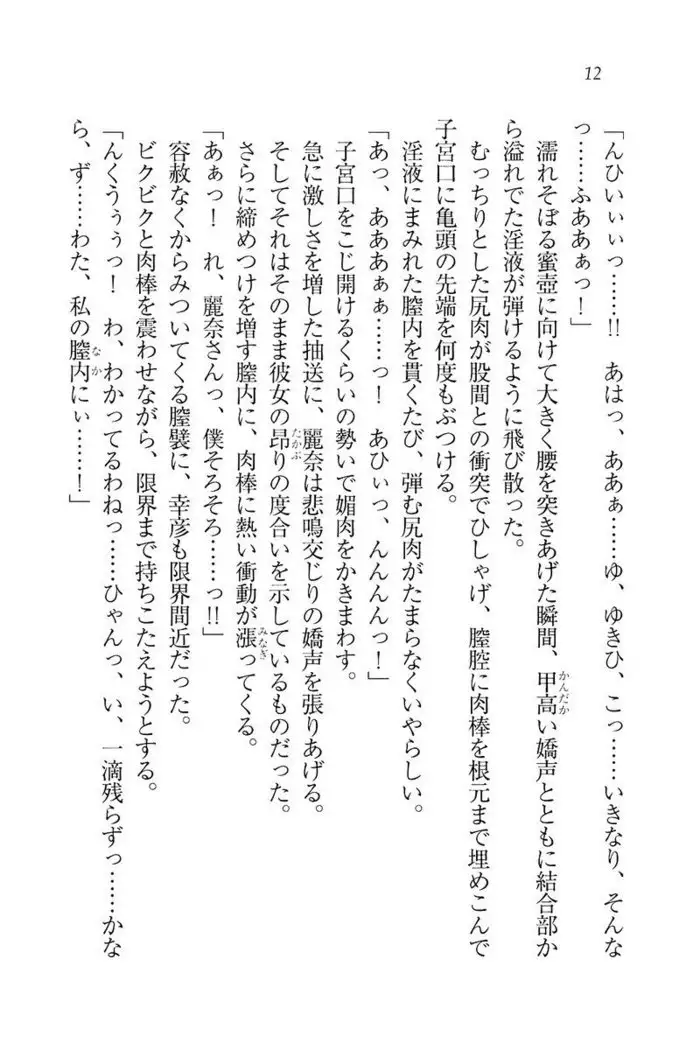 12
「んひいぃぃっ……!! あはっ、ああぁ……ゆ、ゆきひ、こっ……いきなり、そんな
っ……ふああぁっ！」
濡れそぼる蜜壺に向けて大きく腰を突きあげた瞬間、甲高い嬌声とともに結合部か
ら溢れでた淫液が弾けるように飛び散った。
むっちりとした尻肉が股間との衝突でひしゃげ、膣腔に肉棒を根元まで埋めこんで
子宮口に亀頭の先端を何度もぶつける。
淫液にまみれた膣内を貫くたび、弾む尻肉がたまらなくいやらしい。
「あっ、あああぁぁ……っ！ あひぃっ、んんんんっ！」
子宮口をこじ開けるくらいの勢いで媚肉をかきまわす。
急に激しさを増した抽送に、麗奈は悲鳴交じりの嬌声を張りあげる。
そしてそれはそのまま彼女の昂りの度合いを示しているものだった。
さらに締めつけを増す膣内に、肉棒に熱い衝動が漲ってくる。
「あぁっ！ れ、麗奈さんっ、僕そろそろ……っ!!」
容赦なくからみついてくる膣襞に、幸彦も限界間近だった。
ビクビクと肉棒を震わせながら、限界まで持ちこたえようとする。
「んくうぅぅっ！ わ、わかってるわねっ……ひゃんっ、い、一滴残らずっ……かな
ら、ず……わた、私の膣内にぃ……！」